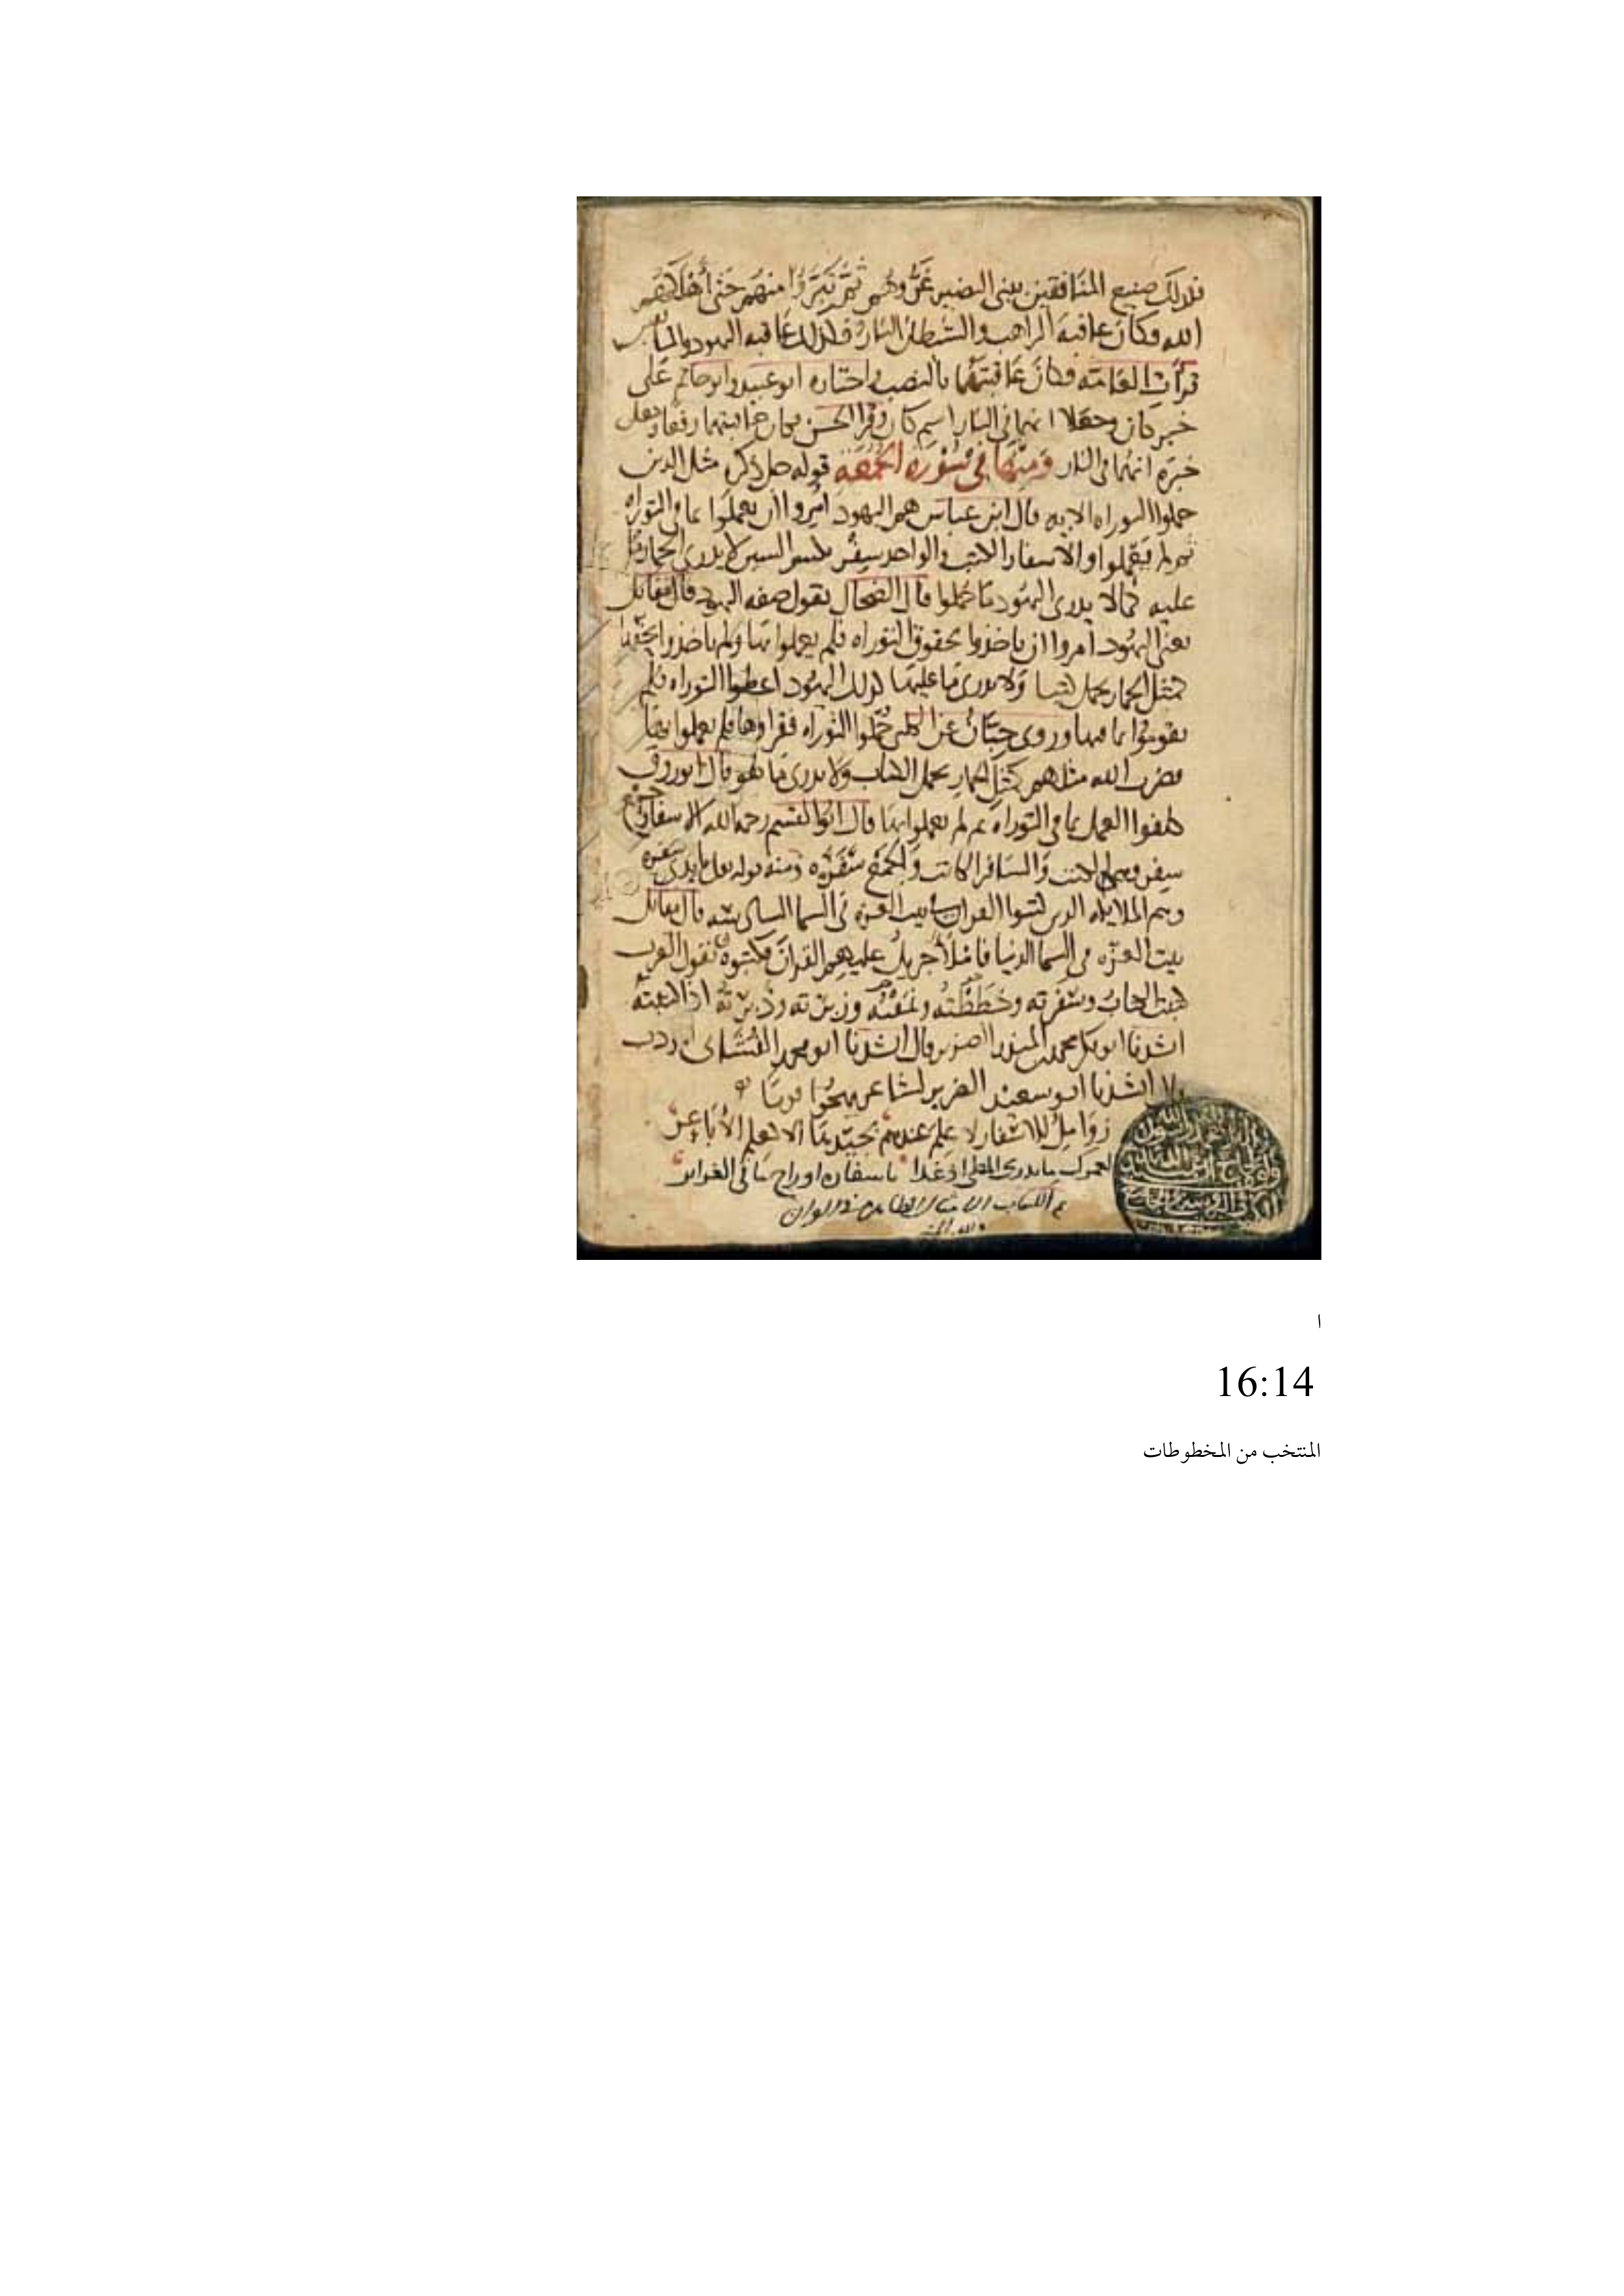 فذلك صنيع المنافقين ببني النضير غروهم ثم تبرؤا منهم حتى أهلكهم
الله وكان عاقبة الراهب والشيطان النار وكذلك عاقبة اليهود والمنافقين
قرأت العامة فكان عاقبتهما بالنصب واختاره ابو عبيد وابو حاتم على
خبر كان وجعلا انهما في النار اسم كان وقرا الحسن فكان عاقبتهما رفعا وجعل
خبره انهما في النار ومنها في سورة الجمعة قوله جل ذكره مثل الذين
حملوا التوراه الايه قال ابن عباس هم اليهود امروا ان يعملوا بما في التوراه
ثم لم يعملوا والاسفار الكتب والواحد سفر بكسر السين لا يدري الحمار ما
عليه كما لا يدري اليهود ما حملوا قال الضحاك يقول صفه اليهود قال مقاتل
يعني اليهود امروا ان ياخذوا بحقوق التوراه فلم يعملوا بها ولم ياخذوا بحقها
كمثل الحمار يحمل كتبا ولا يدري ما عليها كذلك اليهود اعطوا التوراه فلم
يقوموا بما فيها وروى حبان عن الكلبي حملوا التوراه فقراوها فلم يعملوا بها
فضرب الله مثلهم كمثل الحمار يحمل الكتاب ولا يدري ما هو قال ابو روق
كلفوا العمل بما في التوراه ثم لم يعملوا بها قال ابو القسم رحمه الله الاسفار جمع
سفر وهي الكتب والسافر الكاتب والجمع سفره ومنه قوله تعالى بايدي سفره
وهم الملايكه الذين كتبوا القران في بيت العزه في السما قال مقاتل
بيت العزه في السما الدنيا فاملا جبريل عليهم القران فكتبوه تقول العرب
كتبت الكتاب وسفرته وخططته ونمقته وزبرته وذبرته اذا كتبته
انشدنا ابو بكر محمد بن المنذر الضرير قال انشدنا ابو محمد
قال انشدنا ابو سعيد الضرير لشاعر يهجوا قوما
زوامل للاشعار لا علم عندهم بجيدها الا كعلم الاباعر
لعمرك ما يدري المطي اذ غدا باسفاره او راح ما في الغراير
تم الكتاب
ا
16:14
المنتخب من المخطوطات